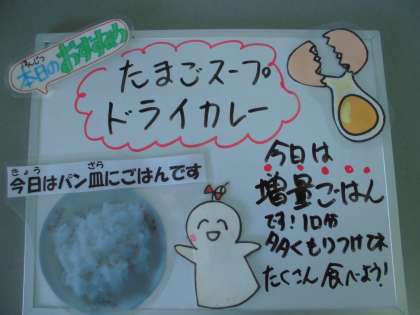 ほんじつ
本日の
おすすめ
たまごスープ
ドライカレー
きょう ざら
今日はパン皿にごはんです
今日は
増量ごはん
です!10分
多くもりつけてネ
たくさん食べよう!